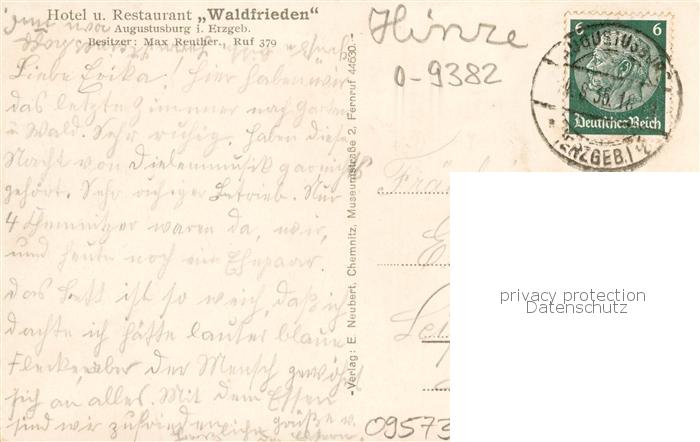 Hotel u. Restaurant „Waldfrieden“
Augustusburg i. Erzgeb.
Besitzer: Max Reuther., Ruf 379
Liebe Erika! Hier haben wir
das letzte Zimmer nach Garten
u Wald. Sehr ruhig, haben diese
Nacht von Dielenmusik garnichts
gehört. Sehr ruhiger Betrieb. Nur
4 Chemnitzer waren da, wir,
und heute noch ein Ehepaar.
Das Bett ist so weich, daß ich
dachte ich hätte lauter blaue
Flecke, aber der Mensch gewöhnt
sich an alles. Mit dem Essen
sind wir zufrieden
Grüße v.
-Verlag: E. Neubert, Chemnitz, Museumstraße 2, Fernruf 44630.-
Hinze
0-9382
6 6
Deutsches Reich
AUGUSTUSBURG
(ERZGEB.)
Fräulein
09573
privacy protection
Datenschutz